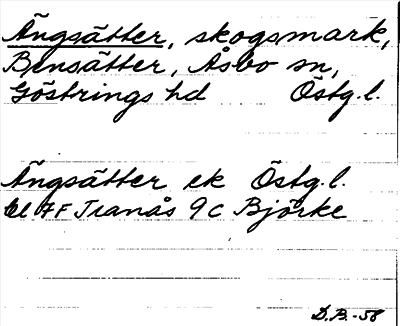 Ängsätter, skogsmark,
Bensätter, Åsbo sn,
Göstrings hd Östg.l.
Ängsätter ek Östg.l.
bl 7F Tranås 9c Björke
D.B.-58